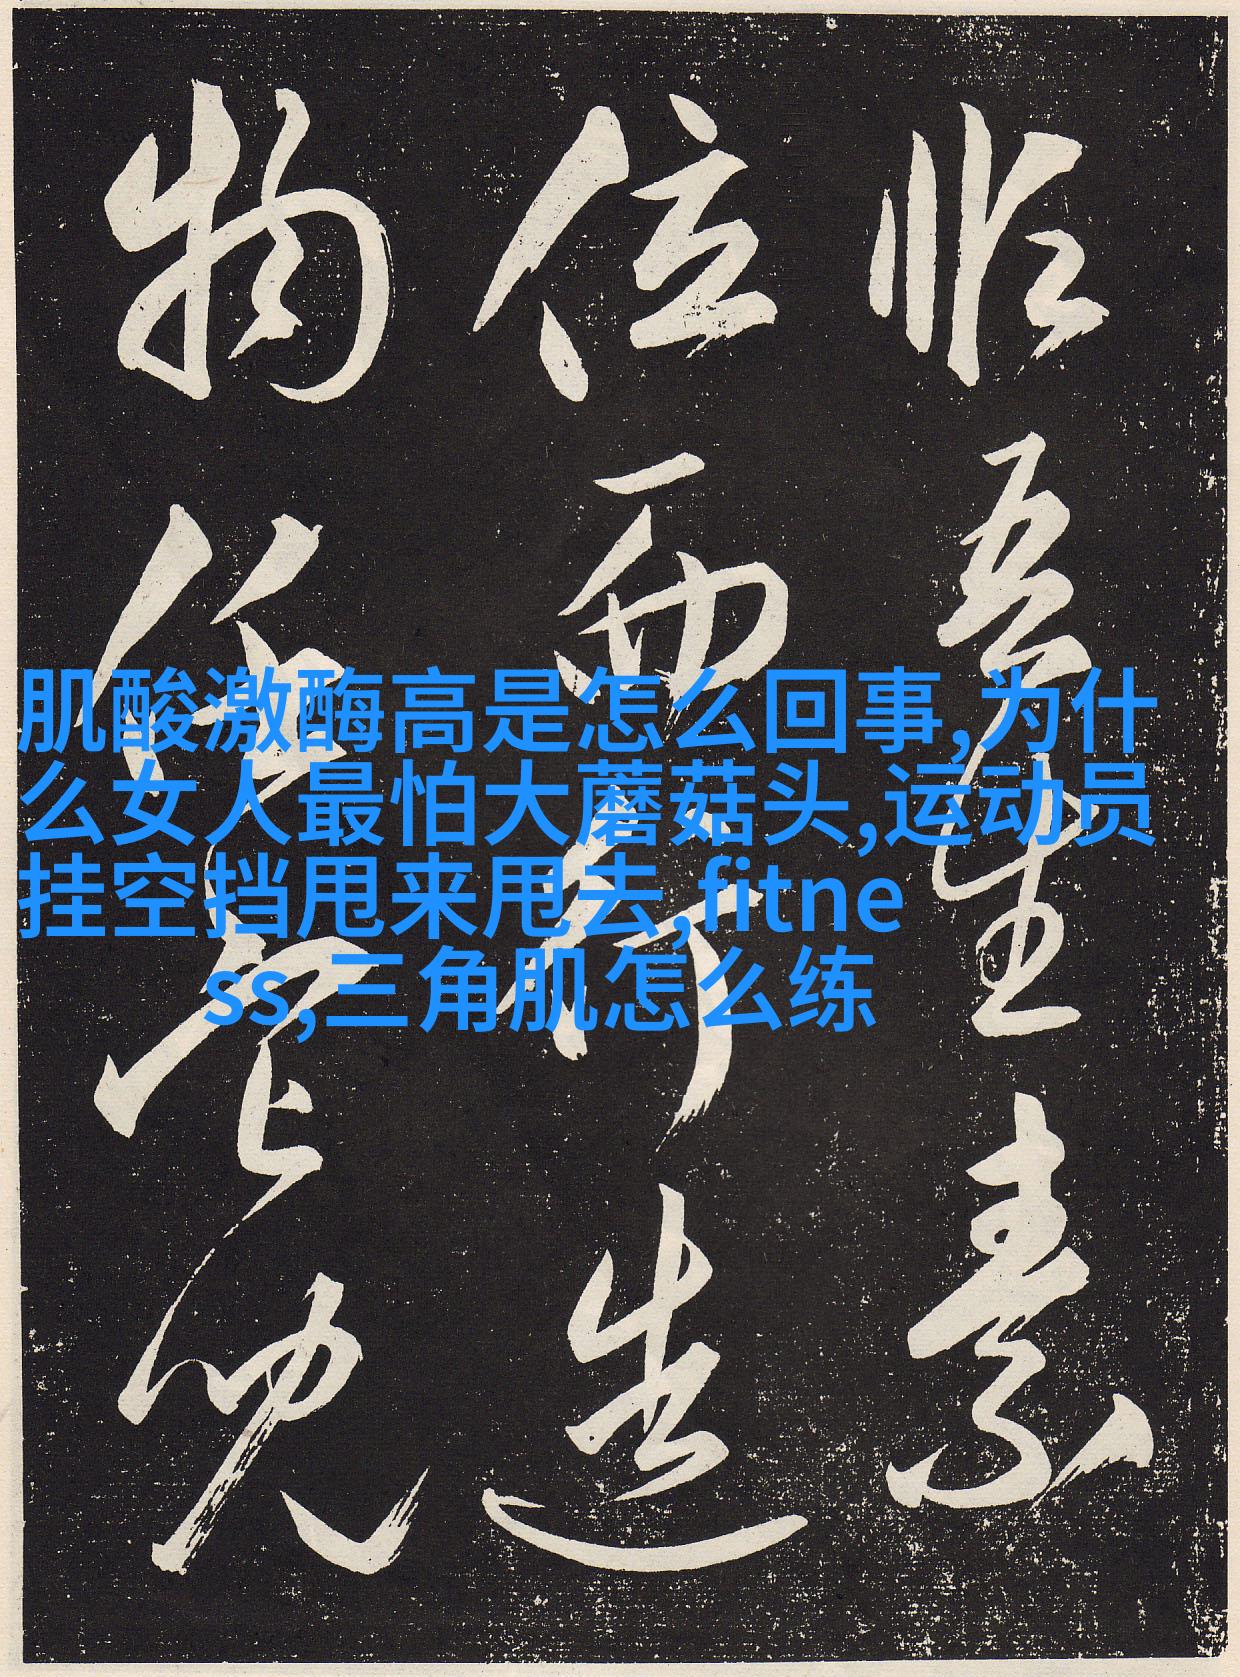 吾生素
位而行造
物任它兒
肌酸激酶高是怎么回事,为什
么女人最怕大蘑菇头,运动员
挂空挡甩来甩去,fitne
ss,三角肌怎么练